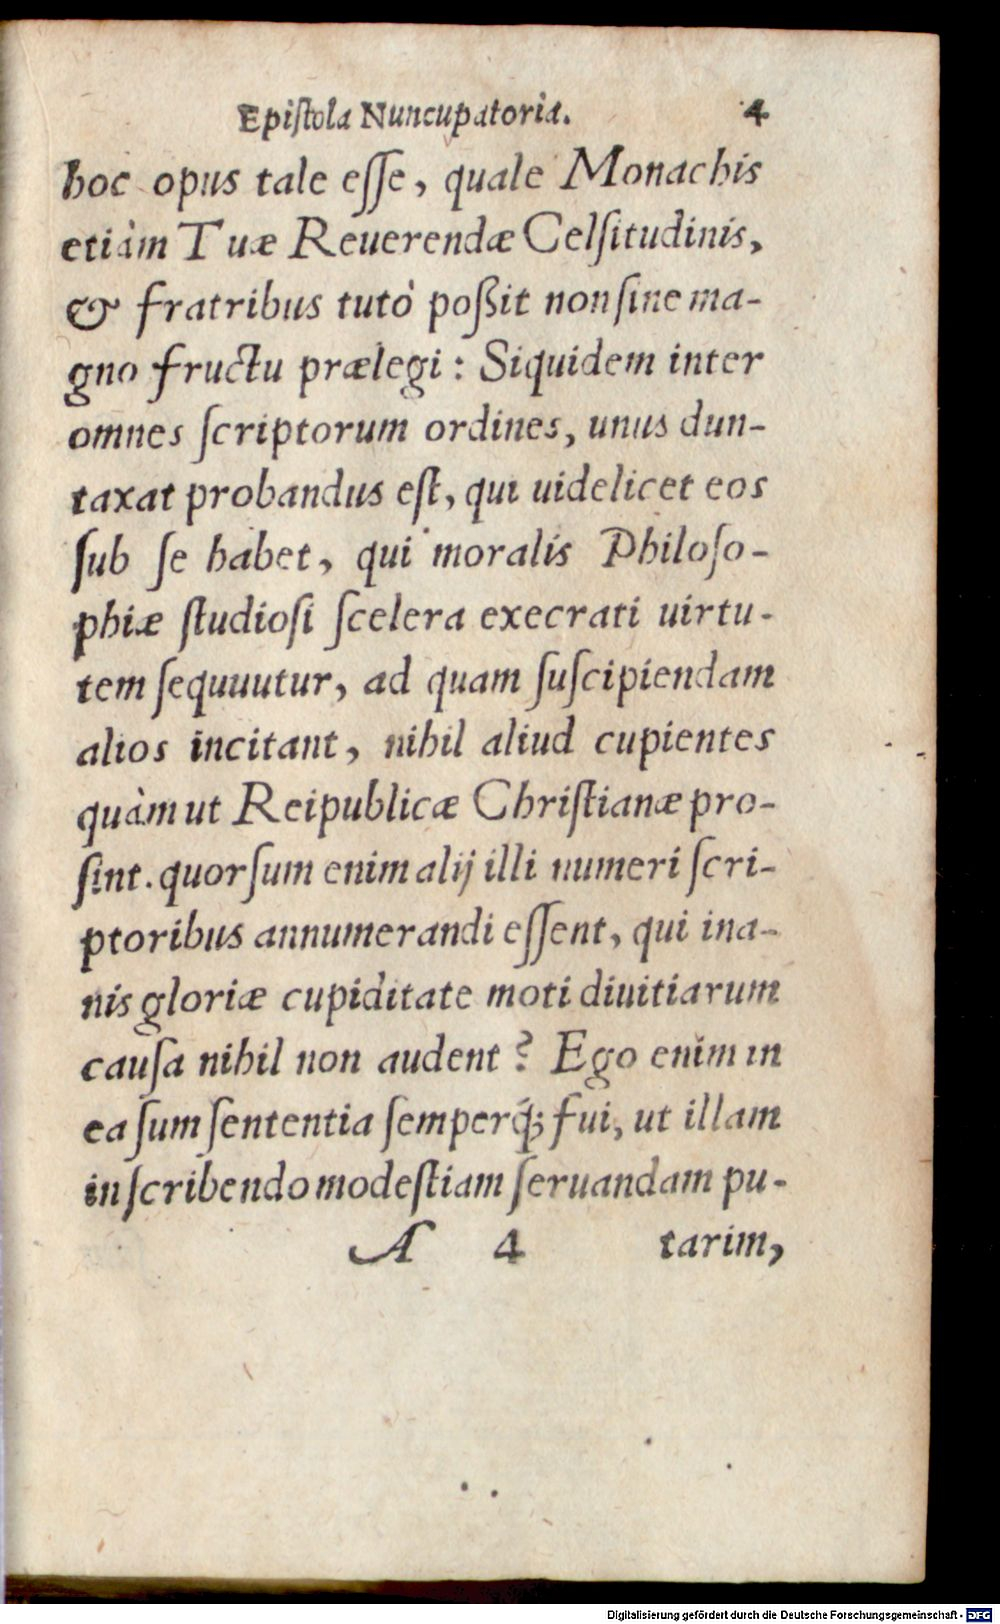 Epiſtola Nuncupatoria. 4
hoc opus tale eſſe, quale Monachis
etiàm Tuæ Reuerendæ Celſitudinis,
& fratribus tutò poßit non ſine ma-
gno fructu prælegi: Siquidem inter
omnes ſcriptorum ordines, unus dun-
taxat probandus eſt, qui uidelicet eos
ſub ſe habet, qui moralis Philoſo-
phiæ ſtudioſi ſcelera execrati uirtu-
tem ſequuutur, ad quam ſuſcipiendam
alios incitant, nihil aliud cupientes
quàm ut Reipublicæ Chriſtianæ pro-
ſint. quorſum enim alij illi numeri ſcri-
ptoribus annumerandi eſſent, qui ina-
nis gloriæ cupiditate moti diuitiarum
cauſa nihil non audent? Ego enim in
ea ſum ſententia ſemperq́; fui, ut illam
in ſcribendo modeſtiam ſeruandam pu-
A 4 tarim,
Digitalisierung gefördert durch die Deutsche Forschungsgemeinschaft - DFG